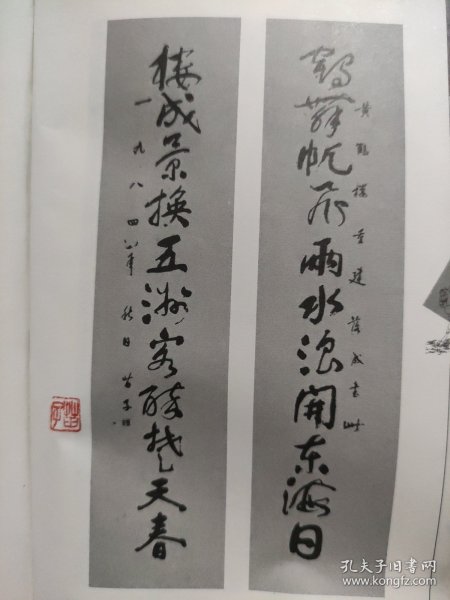 鹤舞帆飞兩水浪開东海日
黄鹤楼重建落成書此
楼成景换五洲客醉楚天春
一九八四年秋日
孔夫子旧书网
www.kongfz.com